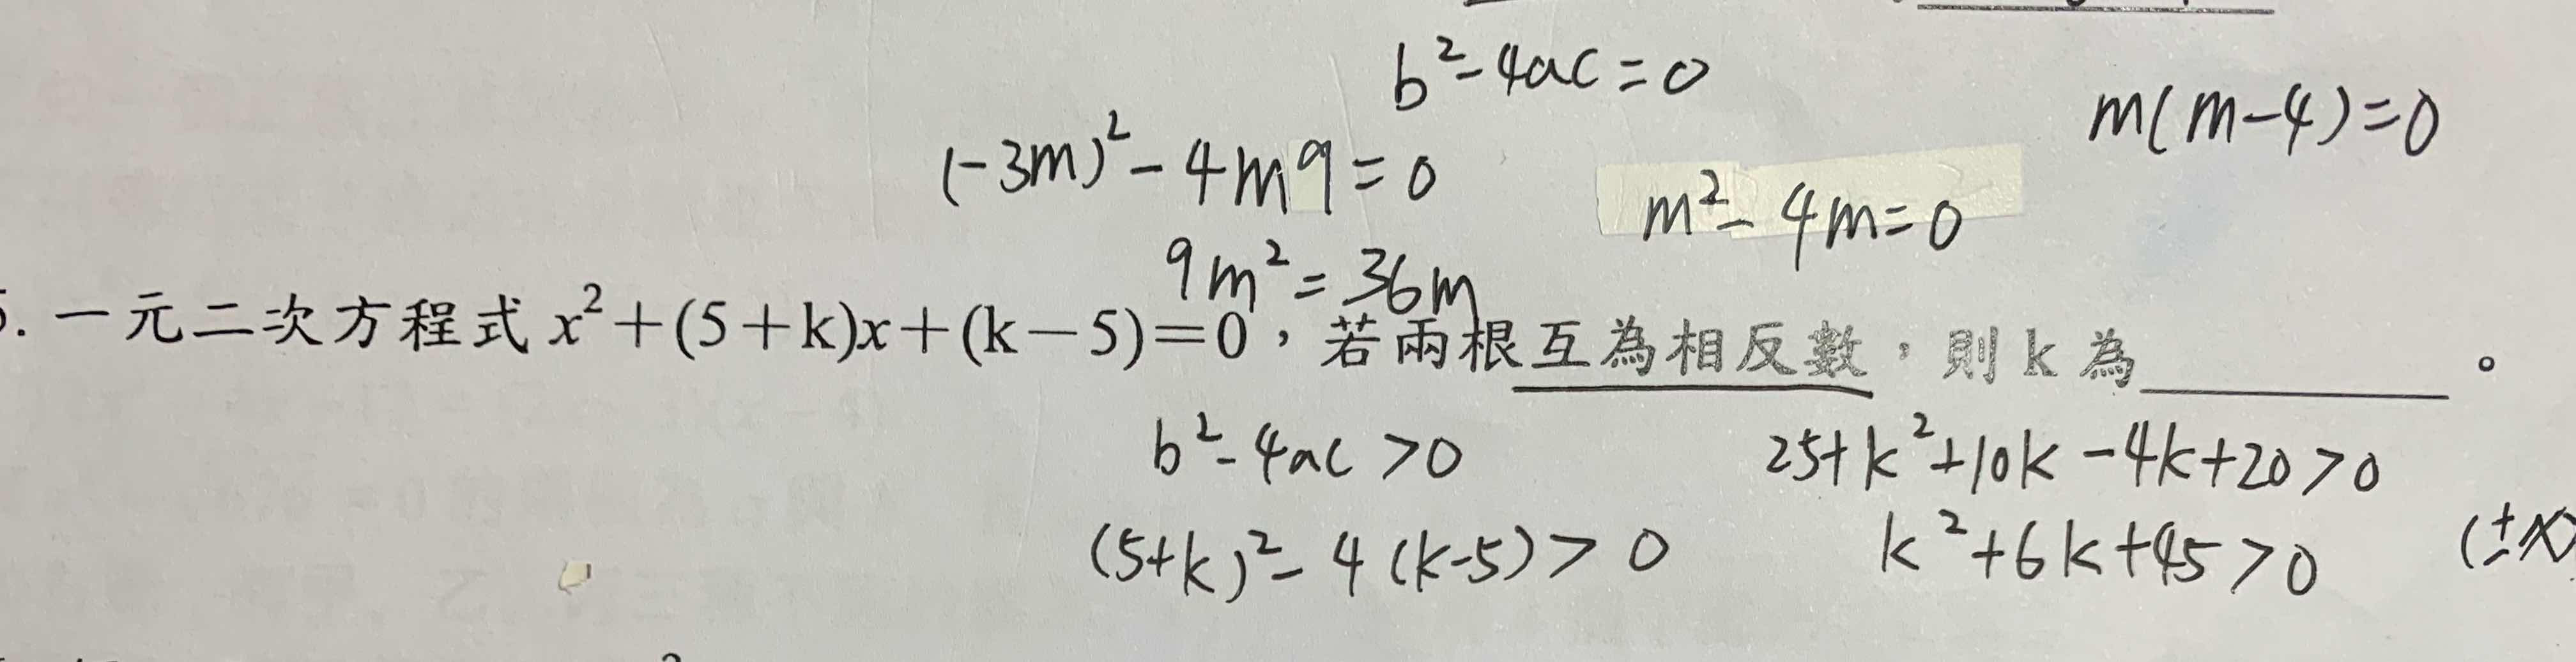 b²-4ac=0
m(m-4)=0
(-3m)²-4m9=0
m²-4m=0
9m²=36m
. 一元二次方程式 x²+(5+k)x+(k-5)=0，若兩根互為相反數，則 k 為________。
b²-4ac>0
25+k²+10k-4k+20>0
(5+k)²-4(k-5)>0
k²+6k+45>0